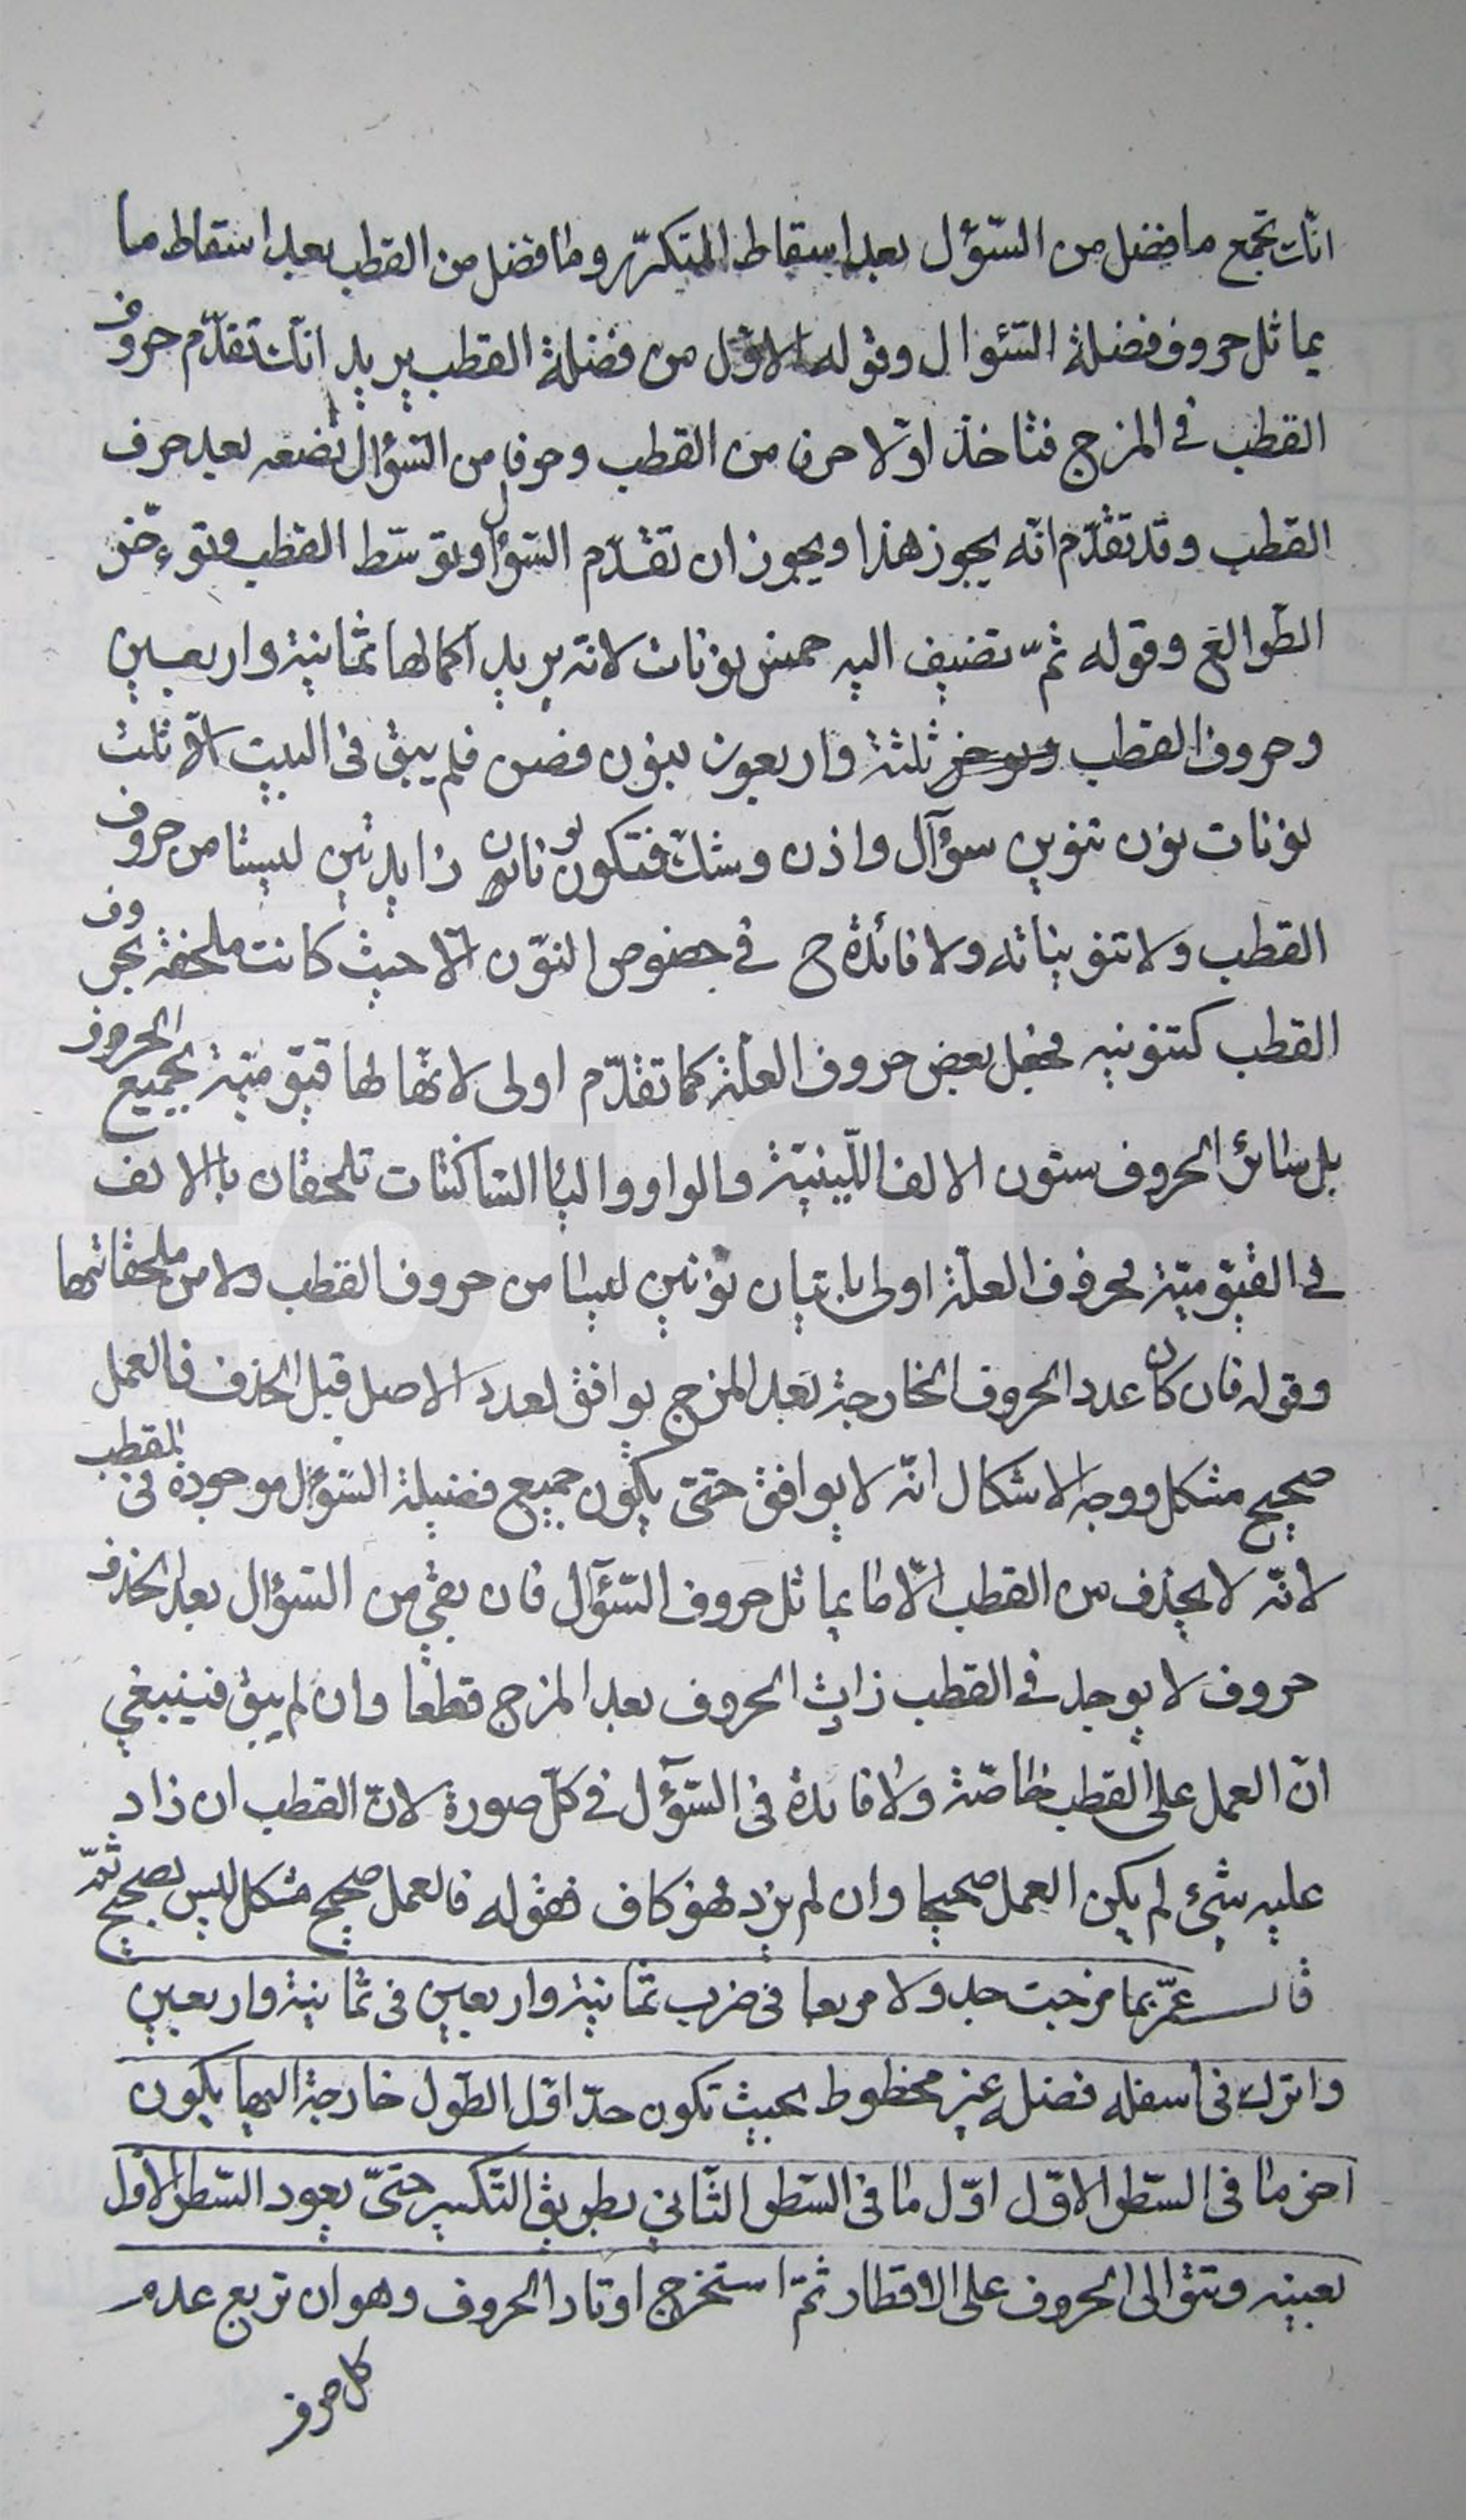 انّك تجمع ما فضل من السّؤل بعد اسقاط المتكرّر وما فضل من القطب بعد اسقاط ما
يماثل حروف فضلة السّئوال وقوله الاوّل من فضلة القطب يريد انّك تقدّم حروف
القطب في المزج فتاخذ اوّلا حرفا من القطب وحرفا من السّؤال تضعه بعد حرف
القطب وقد تقدّم انّه يجوز هذا ويجوز ان تقدّم السّؤال وتوسّط القطب وتوءخّر
الطّوالع وقوله ثمّ تضيف اليه خمس نونات لانّه يريد اكمالها ثمانية واربعين
وحروف القطب ثلثة واربعون بنون فصن فلم يبق في البيت الّا ثلث
نونات نون تنوين سؤآل واذن وشكّ فتكون نونان زايدتين ليستا من حروف
القطب ولا تنويناته ولا فائدة ح في خصوص النّون الّا حيث كانت ملحقه بحروف
القطب كتنوينه فجعل بعض حروف العلّة كما تقدّم اولى لانّها لها قيّوميّة بجميع الحروف
بل سائر الحروف ستون الالف اللّينيّة والواو والياا السّاكنتات تلحقان باالالف
في القيّوميّة فحروف العلّة اولى باتيان نونين ليستا من حروف القطب ولا من ملحقاتها
وقوله فان كان عدد الحروف الخارجة بعد المزج يوافق لعدد الاصل قبل الحذف فالعمل
صحيح مشكل ووجه الاشكال انّه لا يوافق حتّى يكون جميع فضيلة السّؤل موجودة في القطب
لانّه لا يحذف من القطب الّا ما يماثل حروف السّؤآل فان بقي من السّؤال بعد الحذف
حروف لا يوجد في القطب زادت الحروف بعد المزج قطعا وان لم يبق فينبغي
انّ العمل على القطب خاصّة ولا فايدة في السّؤآل في كلّ صورة لانّ القطب ان زاد
عليه شيئ لم يكن العمل صحيحا وان لم يزد فهو كاف فقوله فالعمل صحيح مشكل ليس بصحيح ثمّ
قال عمّر بما مزجت جدولا مربعا في ضرب ثمانية واربعين في ثمانية واربعين
واترك في اسفله فضله غير مخطوط بحيث تكون حدّ اوّل الطّول خارجة اليها يكون
اخر ما في السّطر الاوّل اوّل ما في السّطر الثّاني بطريق التّكسير حتّى يعود السّطر الاوّل
بعينه وتتوالى الحروف على الاقطار ثمّ استخرج اوتاد الحروف وهو ان تربع عدد
كل حرف